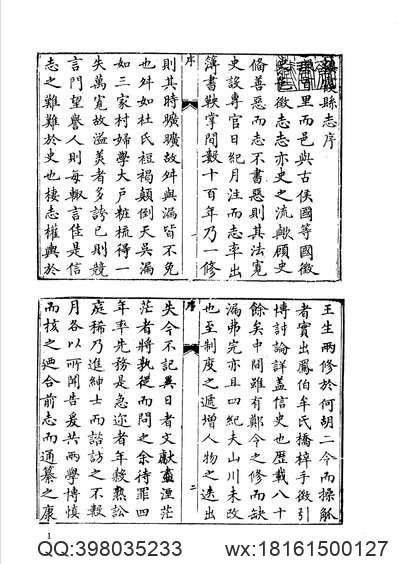 縣志序
里而邑與古侯國等國徵
史邑徵志志亦史之流歟顧史
備善惡而志不書惡則其法寬
史設專官日紀月注而志率出
簿書鞅掌間數十百年乃一修
序
則其時曠曠故舛與漏皆不免
也舛如杜氏裋褐顛倒天吳漏
如三家村婦學大戶粧梳得一
失萬寬故溢美者多誇已則競
言門望譽人則每輒言佳是信
志之難難於史也棲志權輿於
王生兩修於何胡二令而操觚
者實出鳳伯牟氏橋梓手徵引
博討論詳蓋信史也歷載八十
餘矣中間雖有鄭令之修而缺
漏弗完亦且四紀夫山川未改
也至制度之遞增人物之迭出
序
二
失今不記異日者文獻盡湮茫
茫者將孰從而問之余待罪四
年率先務是急邇者年穀熟訟
庭稀乃進紳士而諮訪之不數
月各以所聞告爰共兩學博慎
而核之迺合前志而通纂之康
1
QQ:398035233
wx:18161500127